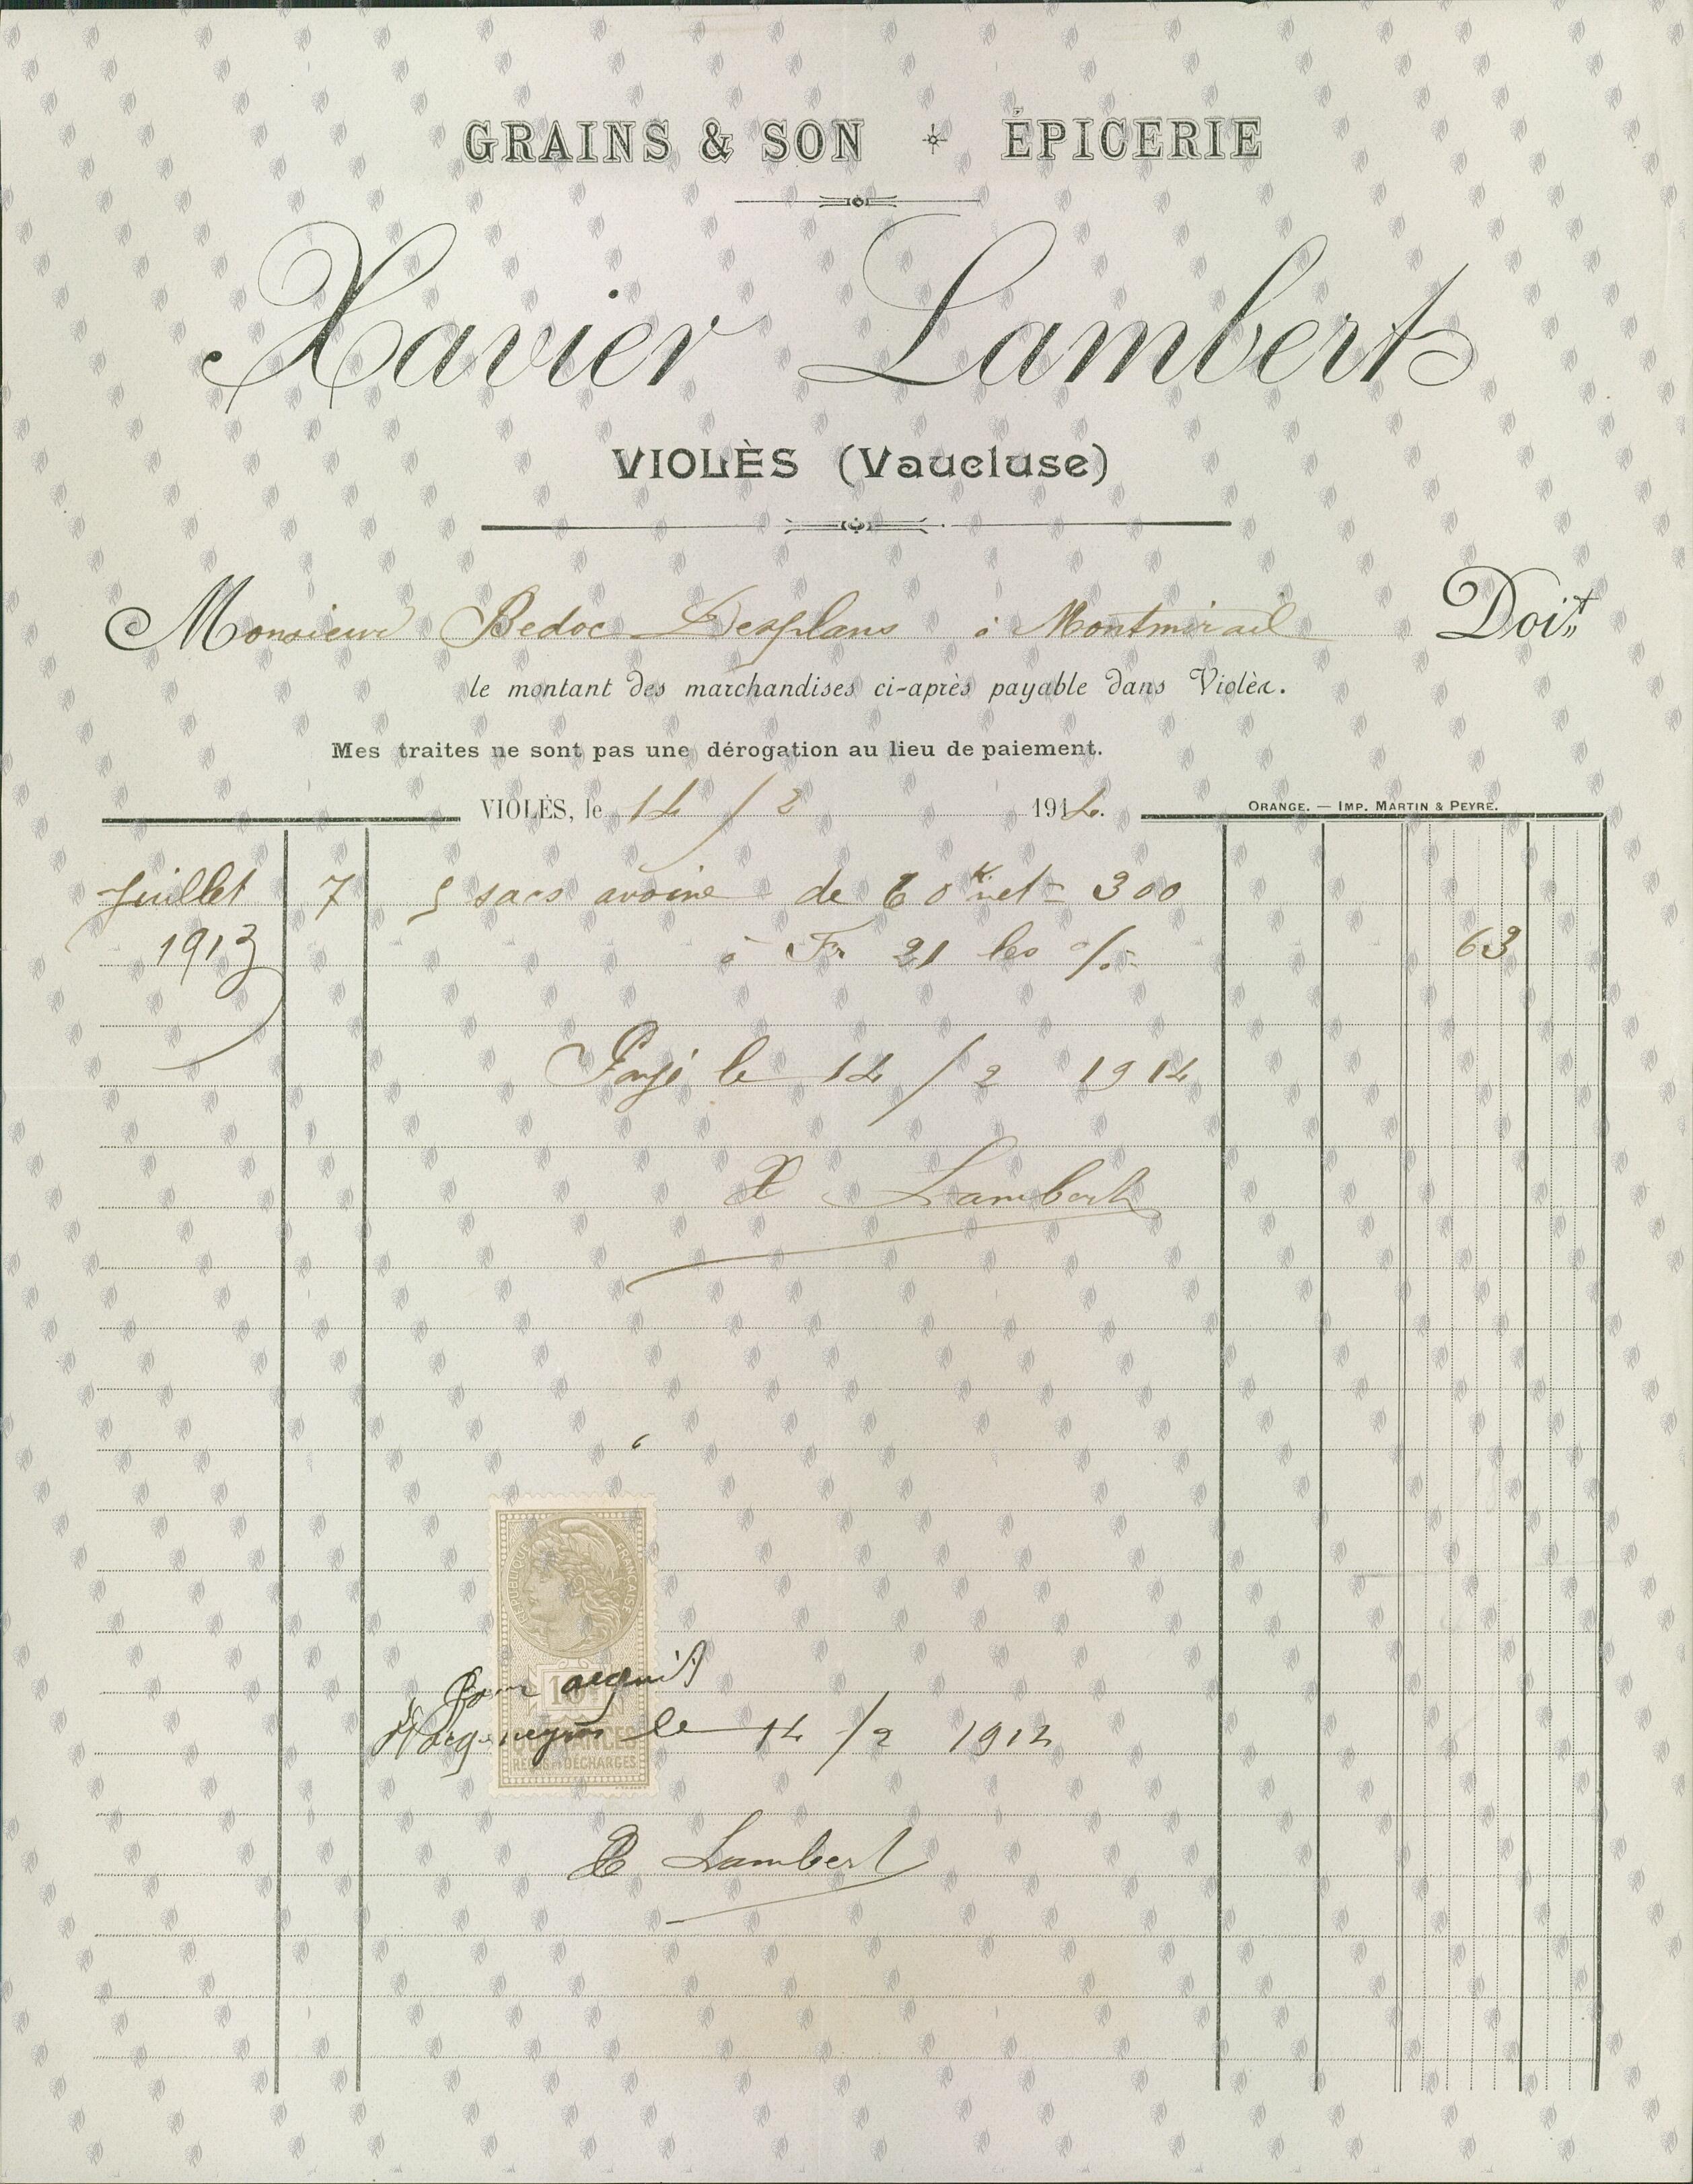 GRAINS & SON ÉPICERIE
Xavier Lambert
VIOLÈS (Vaucluse)
Monsieur Bedoc Desplans à Montmirail Doit
le montant des marchandises ci-après payable dans Violès.
Mes traites ne sont pas une dérogation au lieu de paiement.
VIOLÈS, le 14/2 1914.
ORANGE. — IMP. MARTIN & PEYRE.
Juillet 7 5 sacs avoine de 60 K net = 300
1913 à Fr 21 les % 63
Payé le 14/2 1914
X Lambert
RÉPUBLIQUE FRANÇAISE
Pour acquit
10
le 14/2 1914
QUITTANCES
REÇUS ET DÉCHARGES
X Lambert